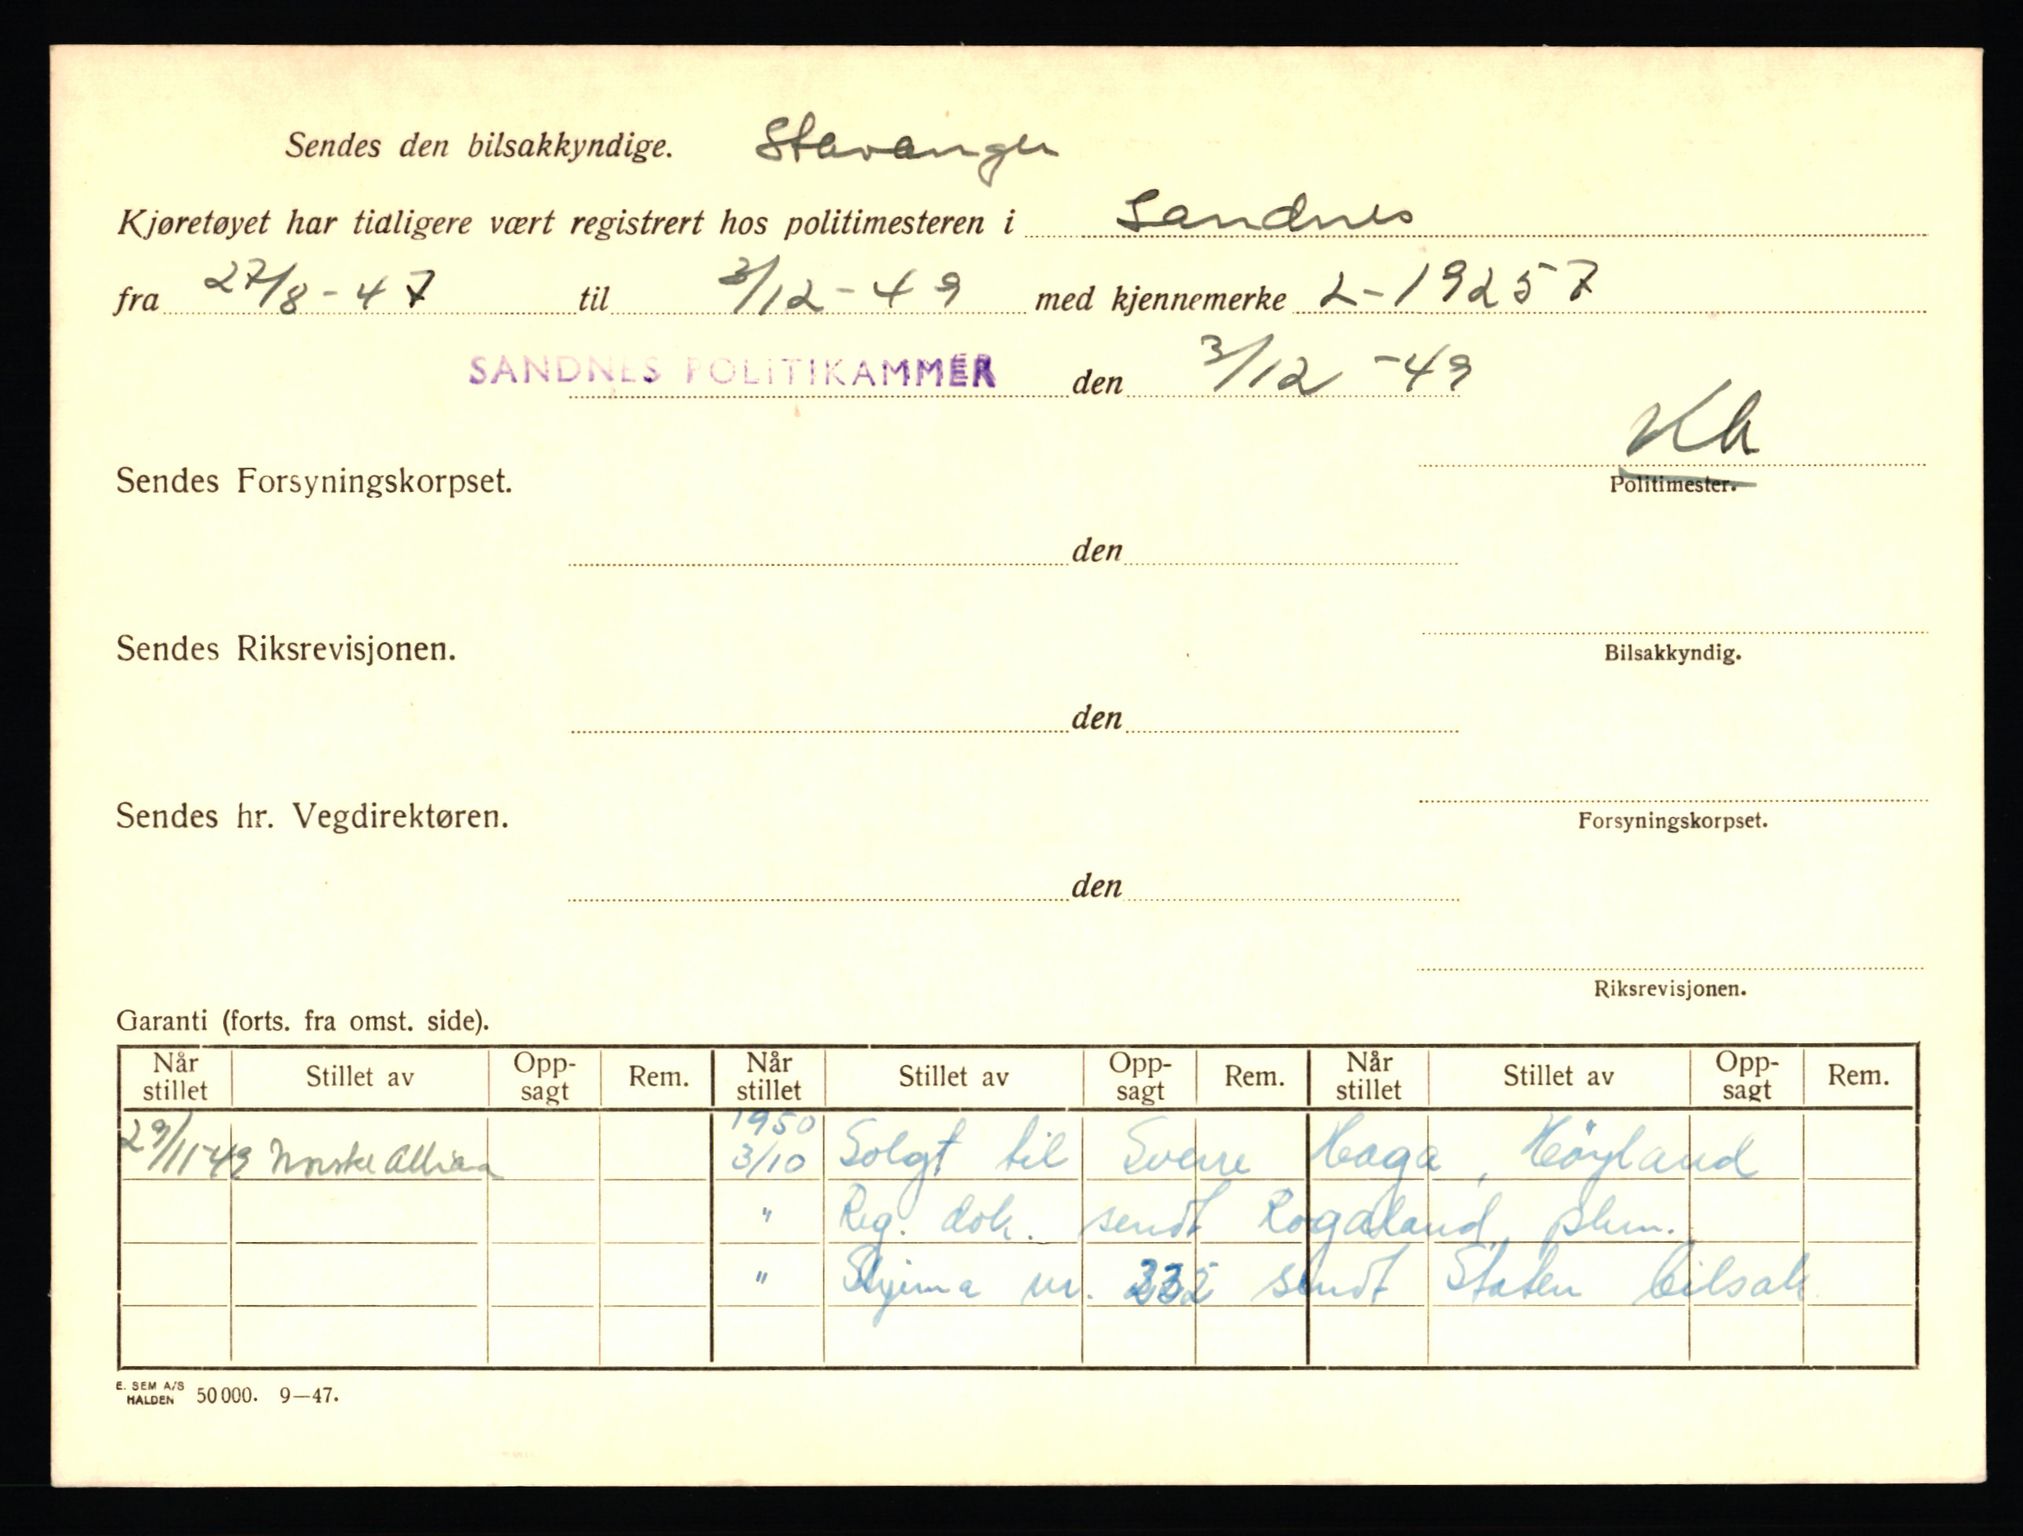 Sendes den bilsakkyndige. Stavanger
Kjøretøyet har tidligere vært registrert hos politimesteren i Sandnes
fra 27/8-47 til 3/12-49 med kjennemerke L-19257
SANDNES POLITIKAMMER den 3/12-49
Sendes Forsyningskorpset.
Politimester.
den
Sendes Riksrevisjonen.
Bilsakkyndig.
den
Sendes hr. Vegdirektøren.
Forsyningskorpset.
den
Riksrevisjonen.
Garanti (forts. fra omst. side).
Når stillet Stillet av Opp-sagt Rem. Når stillet Stillet av Opp-sagt Rem. Når stillet Stillet av Opp-sagt Rem.
1950
29/11-49 Norske 3/10 Solgt til Sverre Haga, Höyland
" Reg. dok. sendt Rogaland pkm.
" Skjema nr. sendt Staten bilsak
E. SEM A/S HALDEN 50 000. 9—47.